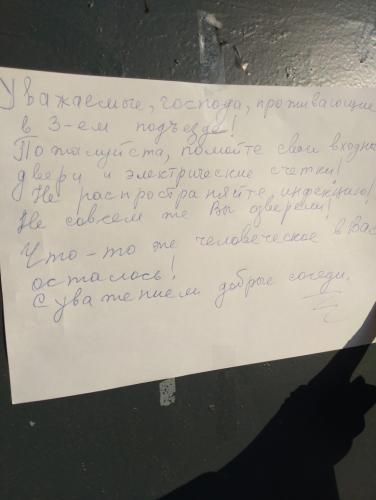 Уважаемые, господа, проживающие
в 3-ем подъезде!
Пожалуйста, помойте свои входны
двери и электрические счетки!
Не распространяйте инфекцию!
Не совсем же Вы озверели!
Что-то же человеческое в Вас
осталось!
С уважением добрые соседи.